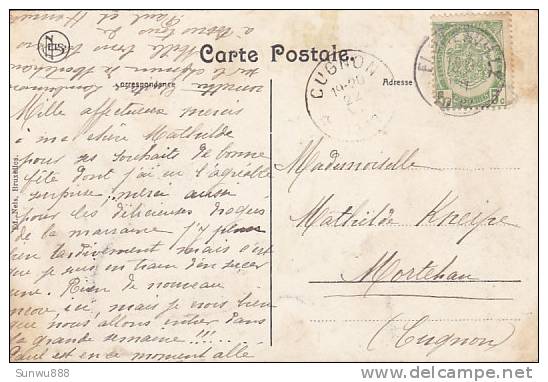 Carte Postale
Correspondance
Adresse
CUGNON
Mille affectueux mercis
à ma chère Mathilde
pour ses souhaits de bonne
fête dont j'ai eu l'agréable
surprise, merci aussi
pour les délicieuses
de la marraine j'y
bien tardivement mais c'est
que je suis en train d'en sucer
une. Rien de nouveau
encore ici, mais je vois bien
que nous allons entrer dans
la grande semaine!!!!
Paul est en ce moment allé
à vous tous de
Paul et
Mademoiselle
Mathilde Kneipe
Mortehan
(Cugnon)
Ed. Nels, Bruxelles.
Sunwu888
delcampe.net